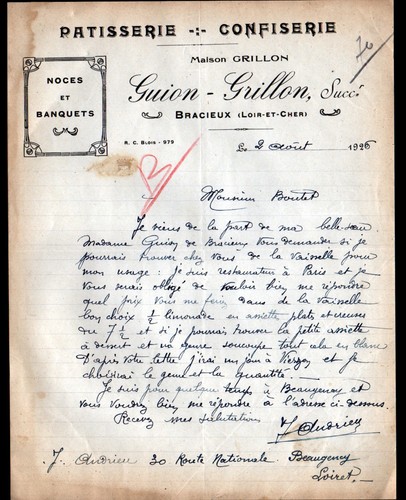 PATISSERIE -:- CONFISERIE
76
Maison GRILLON
NOCES
ET
BANQUETS
Guion-Grillon, Succr.
BRACIEUX (LOIR-ET-CHER)
R. C. BLOIS - 979
L 2 août 1926
Monsieur Boutet
Je viens de la part de ma belle-sœur
Madame Guion de Bracieux vous demander si je
pourrais trouver chez vous de la vaisselle pour
mon usage : je suis restaurateur à Paris et je
vous serais obligé de vouloir bien me répondre
quel prix vous me feriez dans de la vaisselle
bon choix ½ limonade en assiette plats et creuses
du 7 ½ et si je pourrais trouver la petite assiette
à dessert et un genre soucoupe tout cela en blanc
D'après votre lettre j'irai un jour à Vierzon et je
choisirai le genre et la quantité.
Je suis pour quelque temps à Beaugency et
vous voudrez bien me répondre à l'adresse ci-dessus.
Recevez mes salutations
J Andrieu
J. Andrieu 30 Route Nationale Beaugency
Loiret.